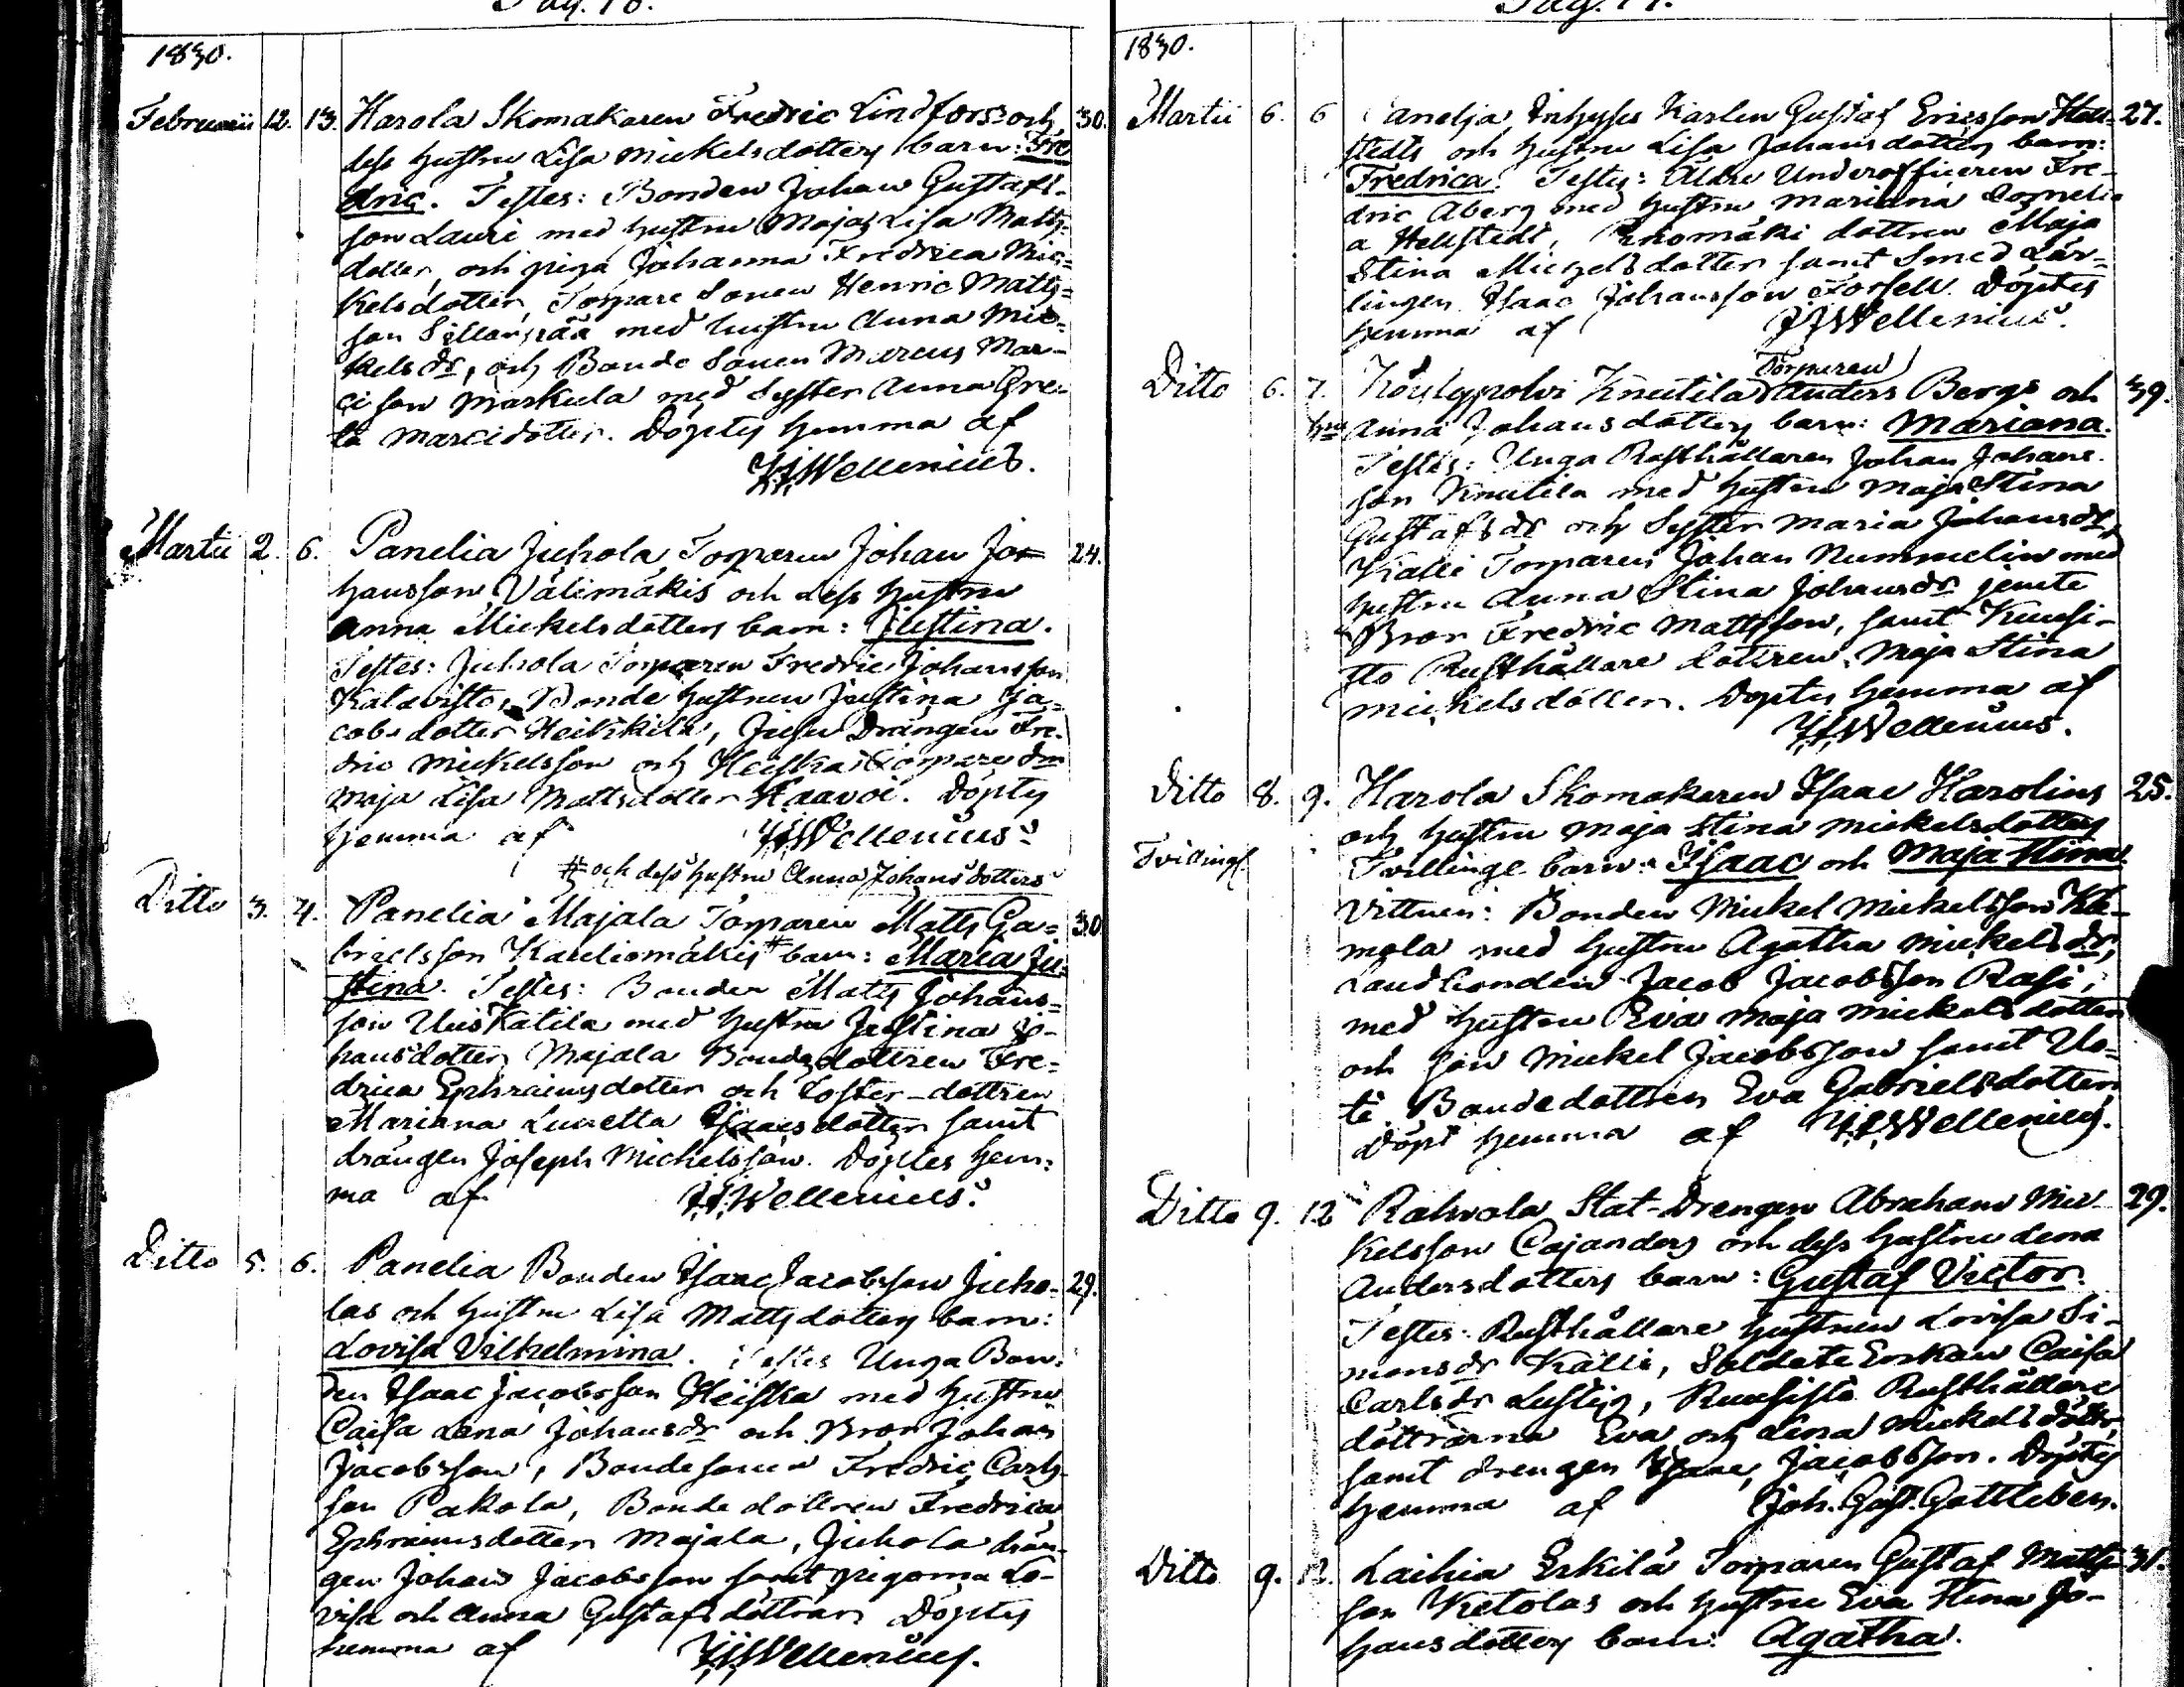 Pag. 10.
1830.
Februarii 12. 13. Harola Skomakaren Fredric Lindfors och 30.
dess hustru Lisa Mickelsdotters barn: Fre
dric. Testes: Bonden Johan Gustafs-
son Lauri med hustru Maja Lisa Matts-
dotter, och piga Johanna Fredrica Mic-
kelsdotter, Torpare Sonen Henric Matts-
son Sillanpää med hustru Anna Mic-
kels dr, och Bonde Sonen Marcus Mar-
ci son Markula med Syster Anna Gre-
ta Marcidotter. Döptes hemma af
Wellenius.
Martii 2. 6. Panelia Juhola Torparen Johan Jo- 24.
hansson Välimäkis och dess hustru
Anna Mickelsdotters barn: Justina.
Testes: Juhola Torparen Fredric Johansson
Kalavisto, Bonde hustrun Justina Ja-
cobs dotter Heikkilä, Drängen Fre-
dric Mickelsson och Heiska Torpare dr
Maja Lisa Mattsdotter Haavoi. Döptes
hemma af Wellenius.
# och dess hustru Anna Johansdotters
Ditto 3. 4. Panelia Majala Torparen Matts Ga- 30.
brielsson Karliomäkis # barn: Maria Ju-
stina. Testes: Bonden Matts Johans-
son Uuskatila med hustru Justina Jo-
hansdotter, Majala Bondedottren Fre-
drica Ephraimsdotter och Foster-dottren
Mariana Lucretta Isaacsdotter samt
drängen Joseph Mickelsson. Döptes hem-
ma af Wellenius.
Ditto 5. 6. Panelia Bonden Isaac Jacobsson Juho- 29.
las och hustru Lisa Mattsdotters barn:
Lovisa Vilhelmina. Testes Unga Bon-
den Isaac Jacobsson Heiska med hustru
Caisa Lena Johansdr och Bror Johan
Jacobsson, Bondesonen Fredric Carls-
son Pakola, Bonde dottren Fredrica
Ephraimsdotter Majala, Juhola drän-
gen Johan Jacobsson samt pigorna Lo-
visa och Anna Gustafs döttrar. Döptes
hemma af Wellenius.
1830.
Martii 6. 6 Panelja Inhyses Karlen Gustaf Ericsson Hell- 27.
stedts och hustru Lisa Johansdotters barn:
Fredrica. Testes: Äldre Underofficeren Fre-
dric Åberg med hustru Mariana Corneli-
a Hellstedt, dottren Maja
Stina Mickelsdotter samt Smed Lär-
lingen Isaac Johansson Forsell. Döptes
hemma af Wellenius.
Ditto 6. 7. Köylypolvi Knutila Torparen Anders Bergs och 39.
hu Anna Johansdotters barn: Mariana.
Testes: Unga Rusthållaren Johan Johans-
son Knutila med hustru Maja Stina
Gustafs dr och Syster Maria Johansdr,
Kalli Torparen Johan Nummelin med
hustru Anna Stina Johansdr jemte
Bror Fredric Mattsson, samt Kuusi-
sto Rusthållare dottren Maja Stina
Mickelsdotter. Döptes hemma af
Wellenius.
Ditto 8. 9. Harola Skomakaren Isaac Harolins 25.
och hustru Maja Stina Mickelsdotters
Tvillingl. Tvillinge barn: Isaac och Maja Stina
Vittnen: Bonden Mickel Mickelsson Kle-
mola med hustru Agatha Mickels dr,
Landbonden Jacob Jacobsson Rasi,
med hustru Eva Maja Mickelsdotter
och son Mickel Jacobsson samt Uo-
ti Bondedottren Eva Gabrielsdotter.
Döpt hemma af Wellenius.
Ditto 9. 12 Rahvola Stat-Drengen Abraham Mic- 29.
kelsson Cajanders och dess hustru Lena
Andersdotters barn: Gustaf Victor.
Testes: Rusthållare hustrun Lovisa Si-
monsdr Källi, Soldate Enkan Caisa
Carlsdr Lustig, Kuusisto Rusthållare
döttrarna Eva och Lena Mickels döttr,
samt drengen Isaac Jacobsson. Döptes
hemma af Joh. Gust. Gottleben.
Ditto 9. 12. Laihia Erkilä Torparen Gustaf Matts- 31.
son Ketolas och hustru Eva Stina Jo-
hansdotters barn: Agatha.